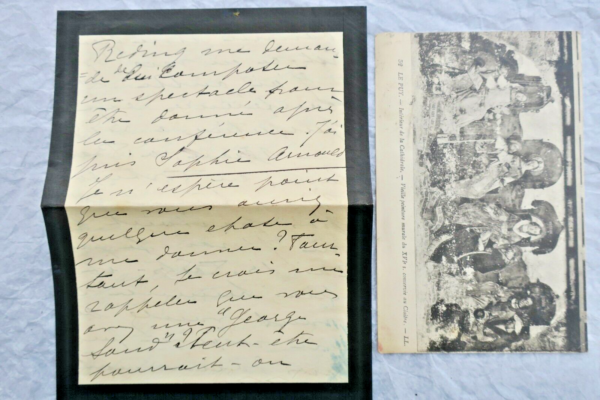 Reding me deman
=de de lui composer
un spectacle pour
être donné après
la conférence. J'ai
pris Sophie Arnould
Je n'espère point
que vous auriez
quelque chose à
me donner? Pour-
tant, je crois me
rappeler que vous
avez une "George
Sand"? Peut-être
pourrait-on
70 LE PUY. — Intérieur de la Cathédrale. — Vieille peinture murale du XVe s., conservée au Cloître. — LL.